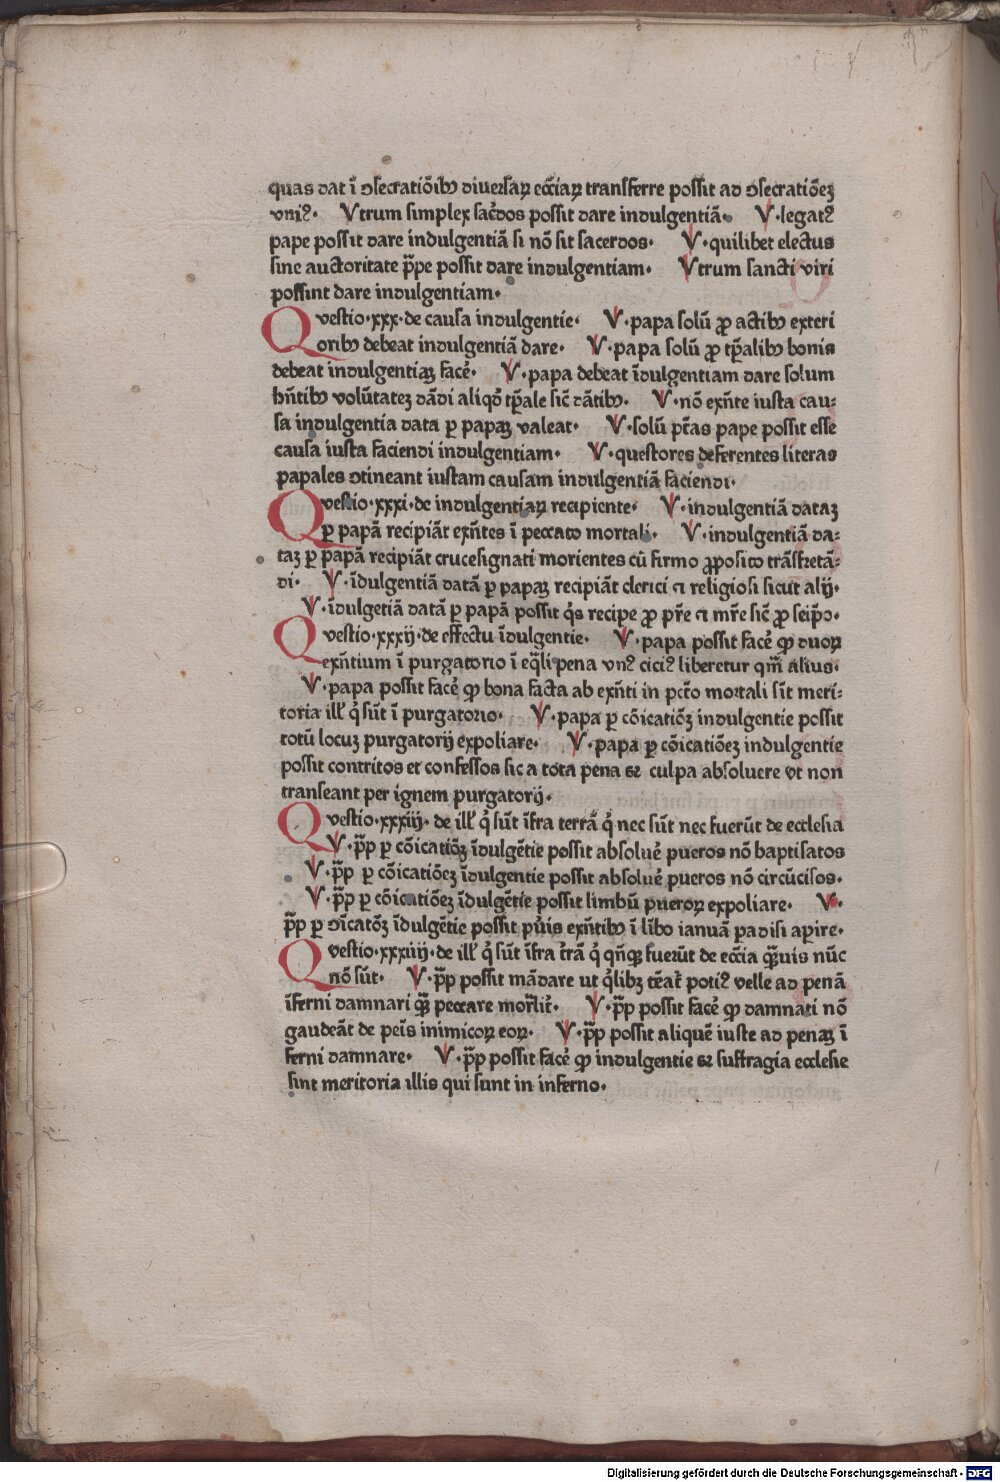 quas dat ī ↄsecratiōibꝫ diuersaꝝ ecc̄iaꝝ transferre possit ad ↄsecratiōeꝫ
vniꝰ· Vtrum simplex sac̄dos possit dare indulgentiā· V·legatꝰ
pape possit dare indulgentiā si nō sit sacerdos· V·quilibet electus
sine auctoritate p̄pe possit dare indulgentiam· Vtrum sancti viri
possint dare indulgentiam·
Qvestio·xxx·de causa indulgentie· V·papa solū ꝓ actibꝫ exteri
oribꝫ debeat indulgentiā dare· V·papa solū ꝓ tp̄alibꝫ bonis
debeat indulgentiaꝫ facē· V·papa debeat īdulgentiam dare solum
hn̄tibꝫ volūtateꝫ dādi aliqd̓ tp̄ale sic̄ dātibꝫ· V·nō exn̄te iusta cau-
sa indulgentia data ꝑ papaꝫ valeat· V·solū pt̄as pape possit esse
causa iusta faciendi indulgentiam· V·questores deferentes literas
papales ↄtineant iustam causam indulgentiā faciendi·
Qvestio·xxxi·de indulgentiaꝝ recipiente· V·indulgentiā dataꝫ
ꝑ papā recipiāt exn̄tes ī peccato mortali· V·indulgentiā da-
taꝫ ꝑ papā recipiāt crucesignati morientes cū firmo ꝓposito trāsfretā-
di· V·īdulgentiā datā ꝑ papaꝫ recipiāt clerici ⁊ religiosi sicut alij·
V·īdulgētiā datā ꝑ papā possit qͥs recipe ꝓ pr̄e ⁊ mr̄e sic̄ ꝓ seip̄o·
Qvestio·xxxij·de effectu īdulgentie· V·papa possit facē ꝙ duoꝝ
exn̄tium ī purgatorio ī eq̄li pena vnꝰ citiꝰ liberetur qm̄ alius·
V·papa possit facē ꝙ bona facta ab exn̄ti in pctō mortali sīt meri-
toria ill̓ qͥ sūt ī purgatorio· V·papa ꝑ cōicatiōꝫ indulgentie possit
totū locuꝫ purgatorij expoliare· V·papa ꝑ cōicatiōeꝫ indulgentie
possit contritos et confessos sic a tota pena ⁊ culpa absoluere vt non
transeant per ignem purgatorij·
Qvestio·xxxiij· de ill̓ qͥ sūt īfra terrā qͥ nec sūt nec fuerūt de ecclesia
V·p̄p ꝑ cōicatiōꝫ īdulgētie possit absoluē pueros nō baptisatos
V·p̄p ꝑ cōicatiōeꝫ īdulgentie possit absoluē pueros nō circūcisos·
V·p̄p ꝑ cōicatiōeꝫ īdulgētie possit limbū pueroꝝ expoliare· V·
p̄p ꝑ ↄīcatōꝫ īdulgētie possit pūis exn̄tibꝫ ī lībo ianuā padisi aꝑire·
Qvestio·xxxiiij·de ill̓ qͥ sūt īfra t̄rā qͥ qn̄qꝫ fuerūt de ecc̄ia qͣuis nūc
nō sūt· V·p̄p possit mādare ut qͥlibꝫ teāt̄ potiꝰ velle ad penā
īferni damnari qͣꝫ peccare mor̄lit̄· V·p̄p possit facē ꝙ damnati nō
gaudeāt de peīs inimicoꝝ eoꝝ· V·p̄p possit aliquē iuste ad penaꝫ ī
ferni damnare· V·p̄p possit facē ꝙ indulgentie ⁊ suffragia ecclesie
sint meritoria illis qui sunt in inferno·
Digitalisierung gefördert durch die Deutsche Forschungsgemeinschaft - DFG